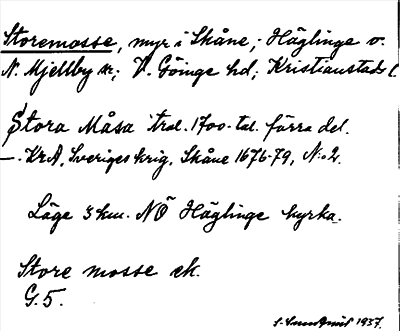 Storemosse, myr i Skåne; Häglinge o.
N. Mjellby sn; V. Göinge hd; Kristianstads l.
Stora Måsa trol. 1700-tal. förra del.
—. KrA, Sveriges krig, Skåne 1676-79, N:o 2.
Läge 3 km. NÖ Häglinge kyrka.
Store mosse ek.
G. 5.
1937.